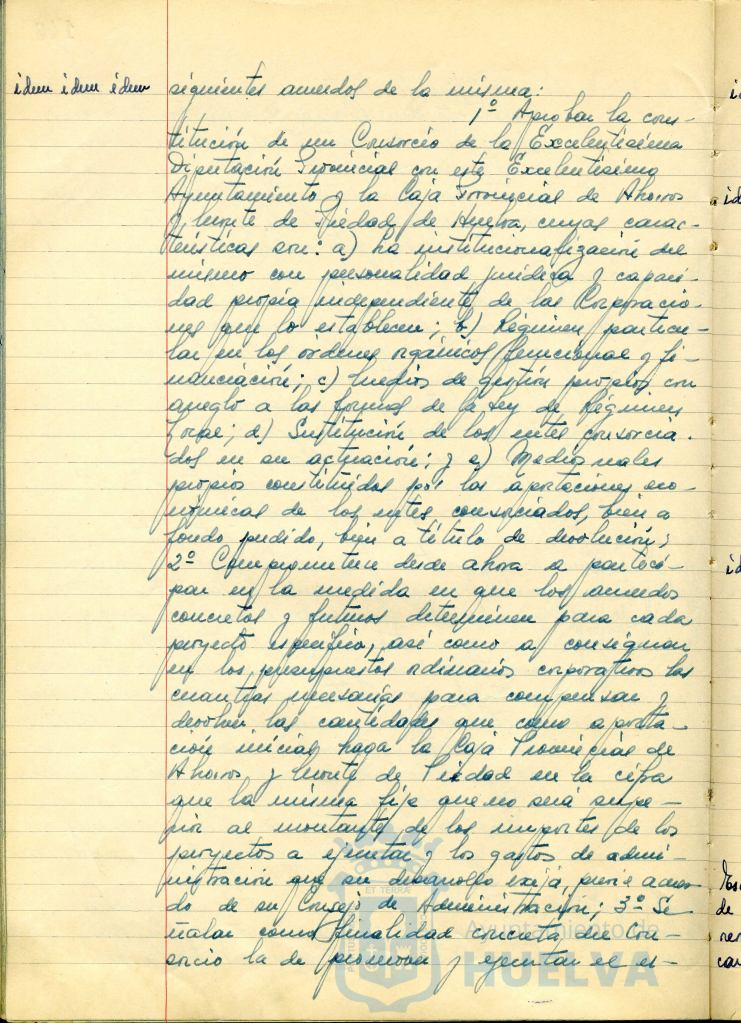 idem idem idem
siguientes acuerdos de la misma:
1º Aprobar la cons-
titución de un Consorcio de la Excelentísima
Diputación Provincial con este Excelentísimo
Ayuntamiento y la Caja Provincial de Ahorros
y Monte de Piedad de Huelva, cuyas carac-
terísticas son: a) La institucionalización del
mismo con personalidad jurídica y capaci-
dad propia independiente de las Corporacio-
nes que lo establecen; b) Régimen particu-
lar en los órdenes orgánicos, funcional y fi-
nanciación; c) Medios de gestión propios con
arreglo a las formas de la Ley de Régimen
Local; d) Sustitución de los entes consorcia-
dos en su actuación; y e) Medios reales
propios constituidos por las aportaciones eco-
nómicas de los entes consorciados, bien a
fondo perdido, bien a título de devolución;
2º Comprometerse desde ahora a partici-
par en la medida en que los acuerdos
concretos y futuros determinen para cada
proyecto específico, así como a consignar
en los presupuestos ordinarios corporativos las
cuantías necesarias para compensar y
devolver las cantidades que como aporta-
ción inicial haga la Caja Provincial de
Ahorros y Monte de Piedad en la cifra
que la misma fije que no será supe-
rior al montante de los importes de los
proyectos a ejecutar y los gastos de admi-
nistración que su desarrollo exija, previo acuer-
do de su Consejo de Administración; 3º Se-
ñalar como finalidad concreta del Con-
sorcio la de promover y ejecutar el es-
Ayuntamiento de
HUELVA